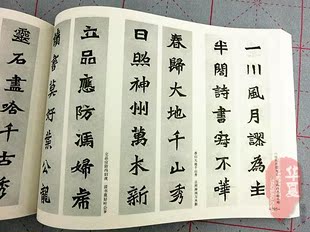 一川風月謬為主
半閣詩書每不嘩
春歸大地千山秀
日照神州萬木新
立品應防馮婦虎
書莫好葉公龍
靈石盡哈千古秀
华夏